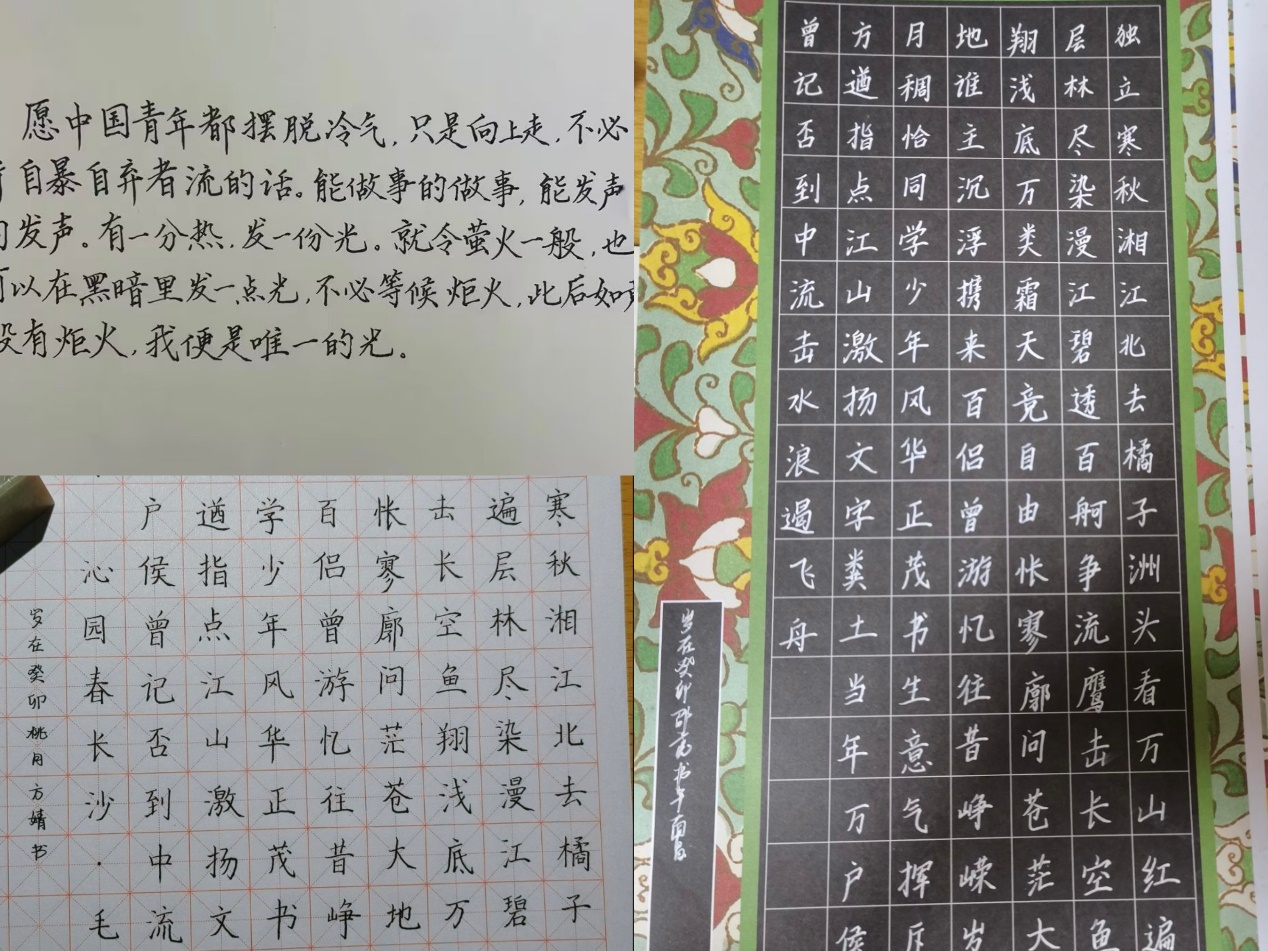 愿中国青年都摆脱冷气,只是向上走,不必
自暴自弃者流的话。能做事的做事,能发声
发声。有一分热,发一份光。就令萤火一般,也
可以在黑暗里发一点光,不必等候炬火,此后如
没有炬火,我便是唯一的光。
寒秋湘江北去橘子
遍层林尽染漫江碧
击长空鱼翔浅底万
怅寥廓问茫苍大地
百侣曾游忆往昔峥
学少年风华正茂书
遒指点江山激扬文
户侯曾记否到中流
沁园春长沙·毛
岁在癸卯桃月方婧书
独立寒秋湘江北去橘子洲头看万山红遍
层林尽染漫江碧透百舸争流鹰击长空鱼
翔浅底万类霜天竟自由怅寥廓问苍茫大
地谁主沉浮携来百侣曾游忆往昔峥嵘岁
月稠恰同学少年风华正茂书生意气挥斥
方遒指点江山激扬文字粪土当年万户侯
曾记否到中流击水浪遏飞舟
岁在癸卯邵书于南昌